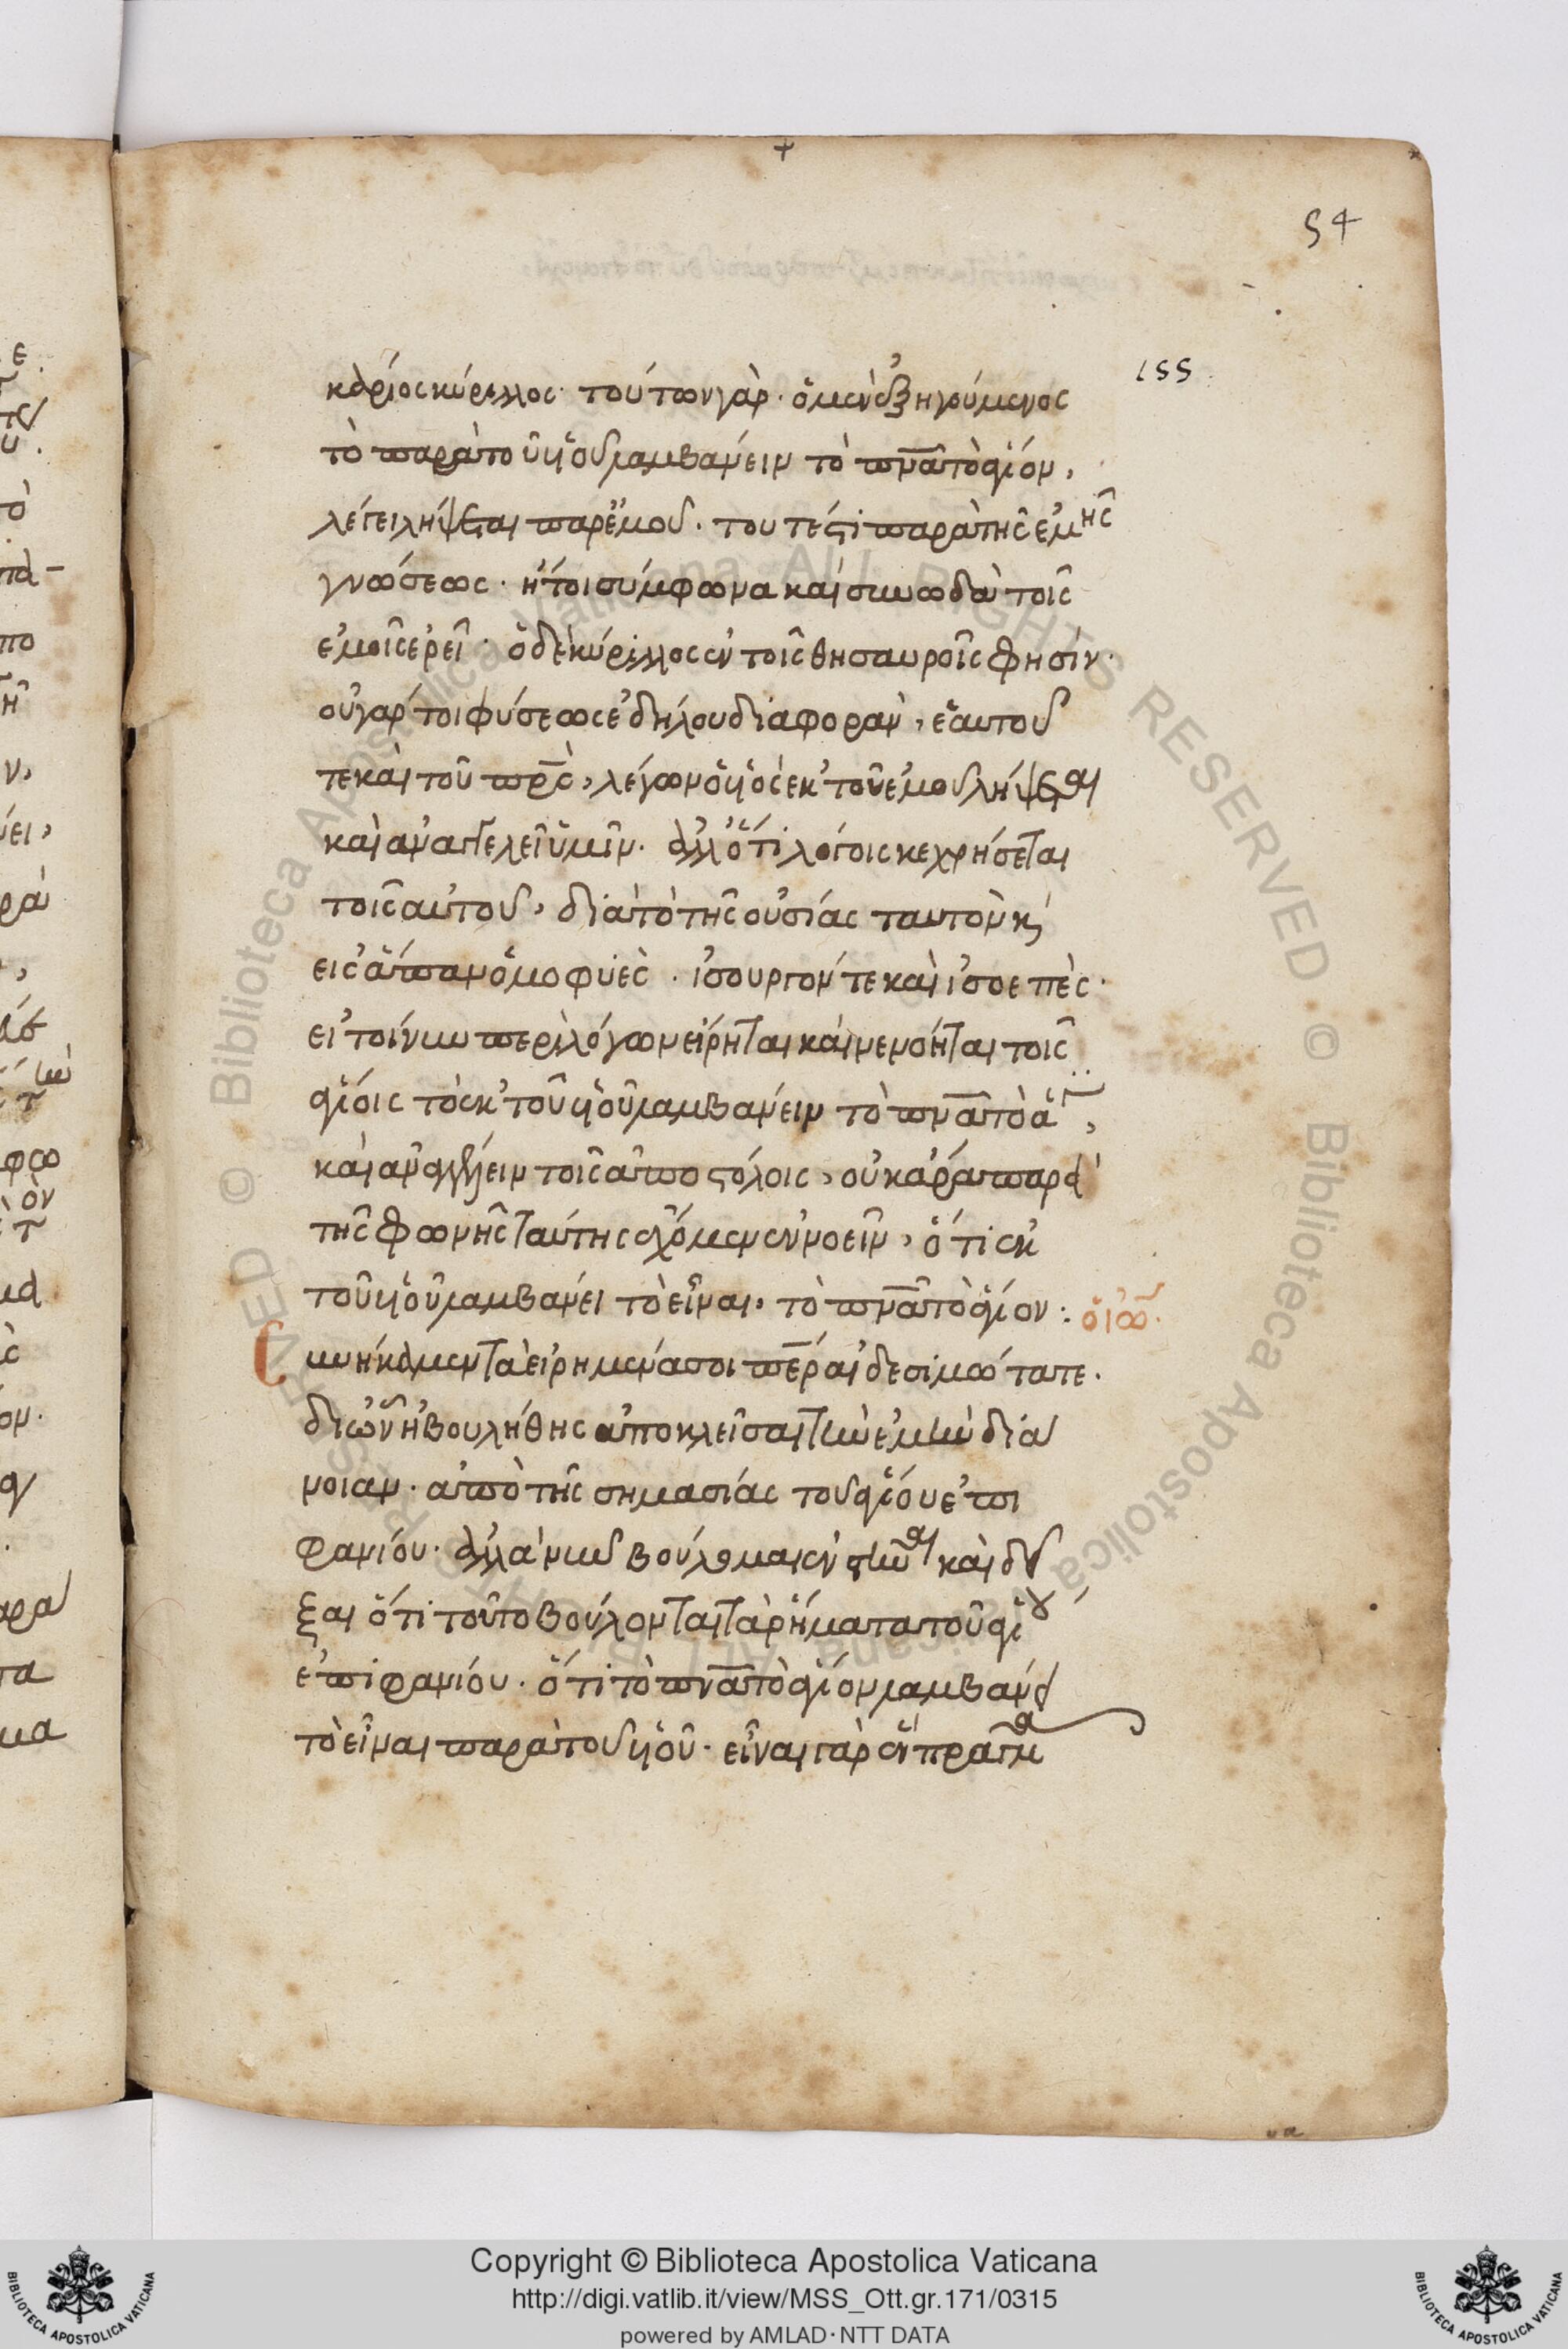 54
155
κάριος κύριλλος· τούτων γὰρ· ὁ μὲν ἐξηγούμενος
τὸ παρὰ τοῦ υἱοῦ λαμβάνειν τὸ πνᾶ τὸ ἅγιον,
λέγει λήψεται παρ' ἐμοῦ· τουτέστι παρὰ τῆς ἐμῆς
γνώσεως· ἤτοι σύμφωνα καὶ συνωδὰ τοῖς
ἐμοῖς ἐρεῖ· ὁ δὲ κύριλλος ἐν τοῖς θησαυροῖς φησίν·
οὐ γάρ τοι φύσεως ἐδήλου διαφορὰν, ἑαυτοῦ
τε καὶ τοῦ πρς, λέγων ὁ υἱὸς ἐκ τοῦ ἐμοῦ λήψεται
καὶ ἀναγγελεῖ ὑμῖν· ἀλλ' ὅτι λόγοις κεχρήσεται
τοῖς αὐτοῦ, διὰ τὸ τῆς οὐσίας ταυτὸν κ
εἰς ἅπαν ὁμοφυὲς· ἰσουργόν τε καὶ ἰσοεπὲς·
εἰ τοίνυν περὶ λόγων εἴρηται καὶ νενόηται τοῖς
ἁγίοις τὸ ἐκ τοῦ υἱοῦ λαμβάνειν τὸ πνᾶ τὸ ἅγ,
καὶ ἀναγγέλλειν τοῖς ἀποστόλοις, οὐκ ἄρα παρὰ
τῆς φωνῆς ταύτης ἔχομεν ἐννοεῖν, ὅτι ἐκ
τοῦ υἱοῦ λαμβάνει τὸ εἶναι, τὸ πνᾶ τὸ ἅγιον: ὁ ἰω·
Συνῆκα μὲν τὰ εἰρημένα σοι πέρ αἰδεσιμώτατε·
δι' ὧν ἠβουλήθης ἀποκλεῖσαι τὴν ἐμὴν διά
νοιαν· ἀπὸ τῆς σημασίας τοῦ ἁγίου ἐπι
φανίου· ἀλλὰ νῦν βούλομαι ἐνστῆναι καὶ δεῖ
ξαι ὅτι τοῦτο βούλονται τὰ ῥήματα τοῦ ἁγίου
ἐπιφανίου· ὅτι τὸ πνᾶ τὸ ἅγιον λαμβάνει
τὸ εἶναι παρὰ τοῦ υἱοῦ· εἶναι γὰρ ἓν πρᾶγμα
Copyright © Biblioteca Apostolica Vaticana
http://digi.vatlib.it/view/MSS_Ott.gr.171/0315
powered by AMLAD · NTT DATA